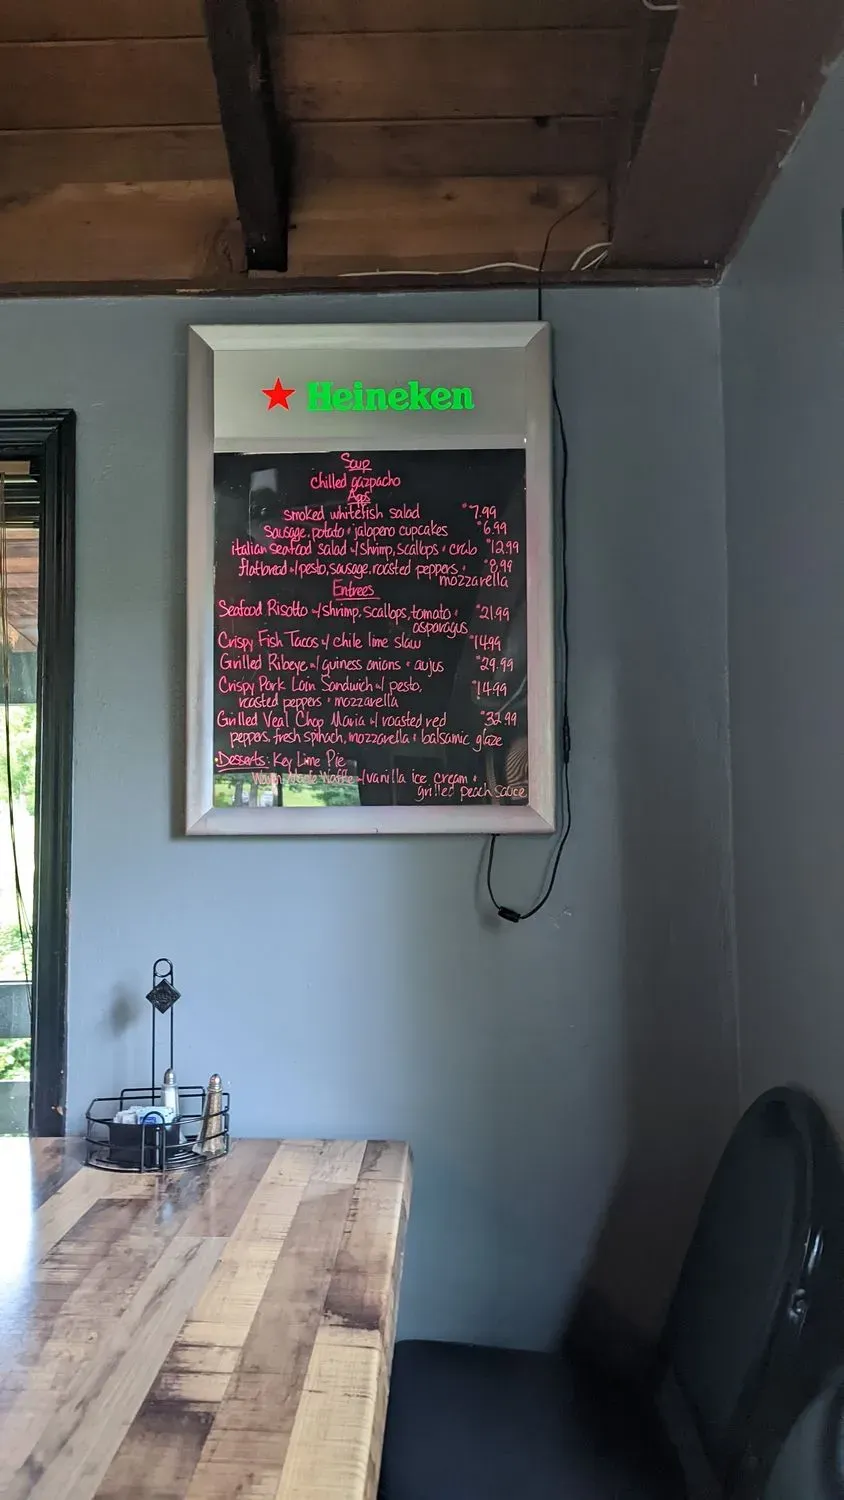 Heineken
Soup
chilled gazpacho
Apps
smoked whitefish salad $7.99
sausage, potato + jalapeno cupcakes $6.99
italian seafood salad w/ shrimp, scallops + crab $12.99
flatbread w/ pesto, sausage, roasted peppers + $8.99
mozzarella
Entrees
Seafood Risotto w/ shrimp, scallops, tomato + $21.99
asparagus
Crispy Fish Tacos w/ chile lime slaw $14.99
Grilled Ribeye w/ guiness onions + aujus $29.99
Crispy Pork Loin Sandwich w/ pesto, $14.99
roasted peppers + mozzarella
Grilled Veal Chop Maria w/ roasted red $32.99
peppers, fresh spinach, mozzarella + balsamic glaze
Desserts: Key Lime Pie
Warm Maple Waffle w/ vanilla ice cream +
grilled peach sauce